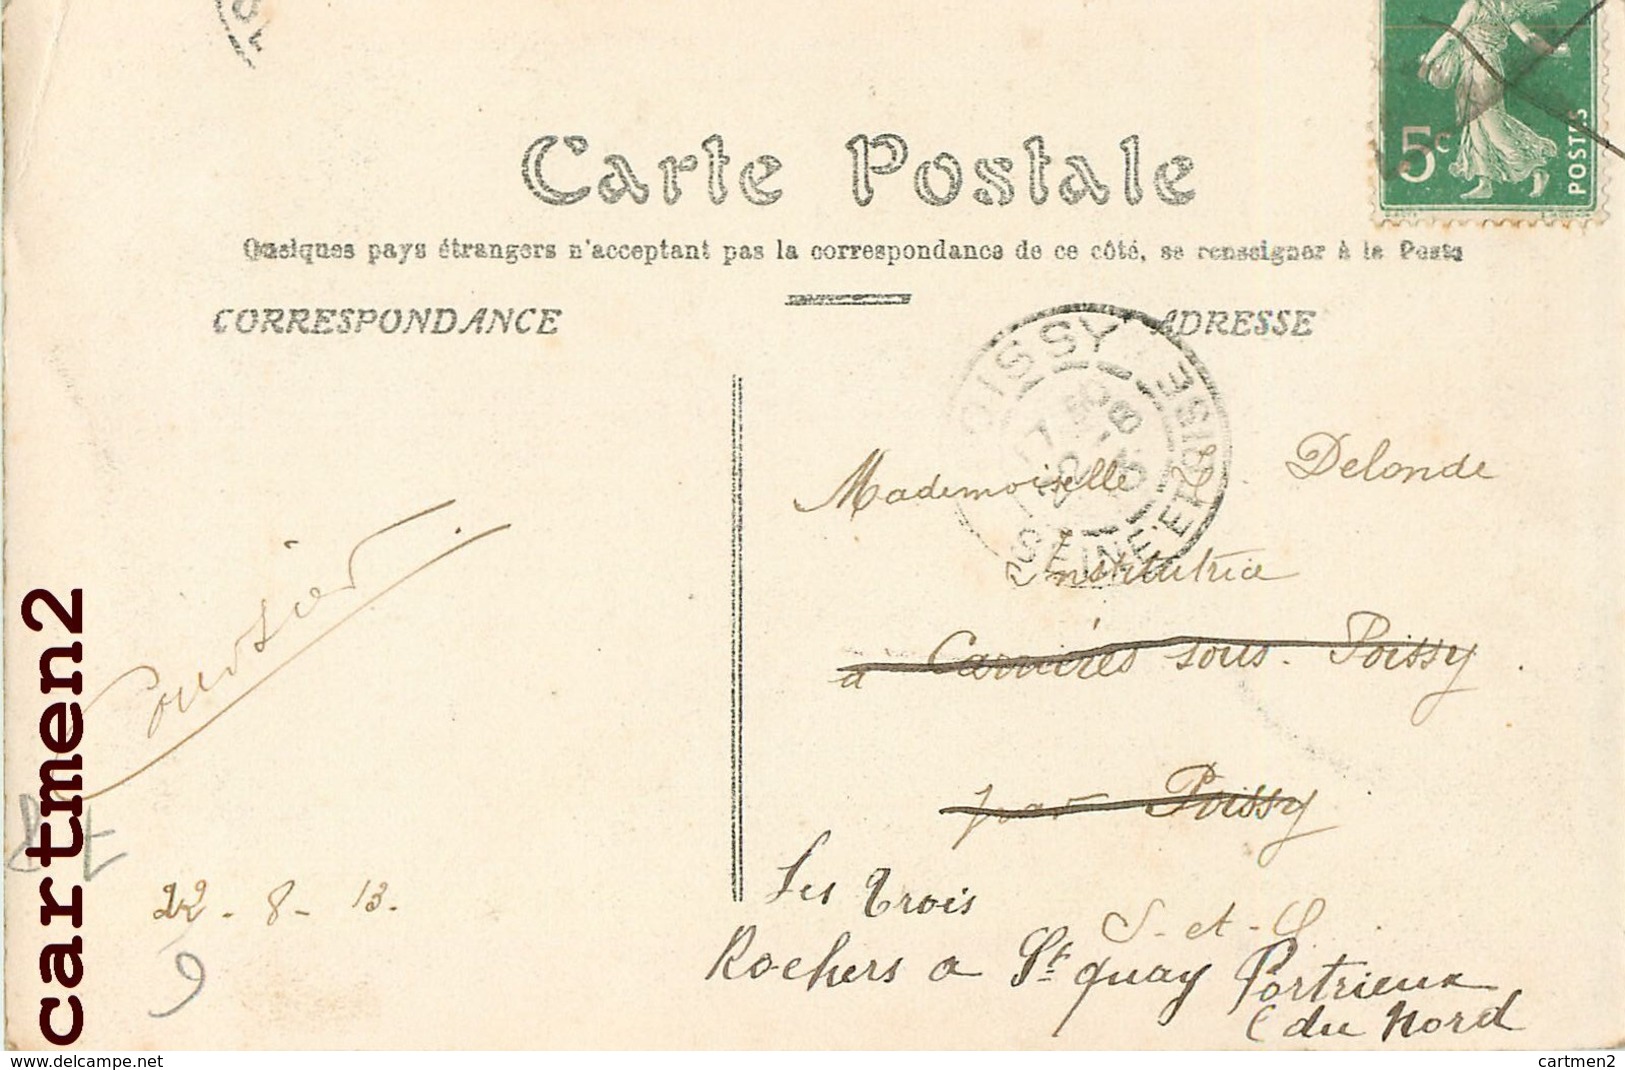 5c
POSTES
Carte Postale
Quelques pays étrangers n'acceptant pas la correspondance de ce côté, se renseigner à la Poste
CORRESPONDANCE
ADRESSE
POISSY
SEINE ET OISE
Mademoiselle Delonde
Institutrice
a Carrières sous-Poissy
par Poissy
S-et-O
Coursier
22-8-13.
9
Les Trois
Rochers a St quay Portrieux
C du Nord
cartmen2
www.delcampe.net
cartmen2